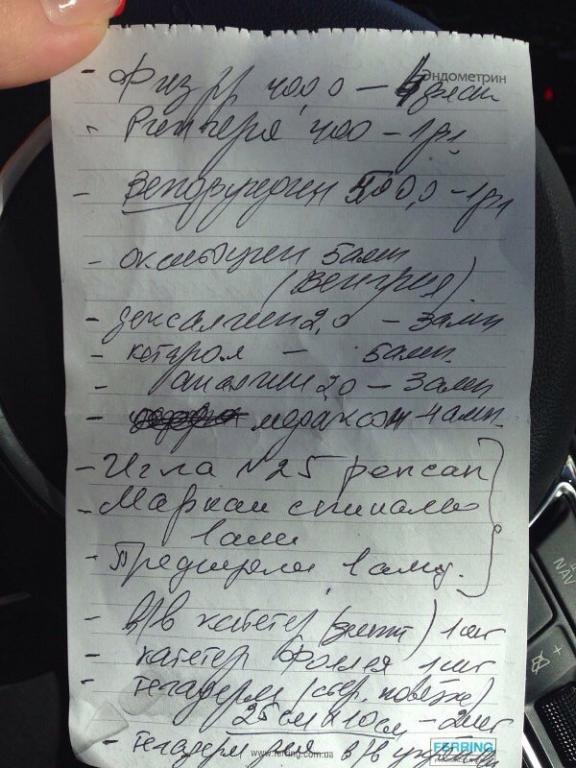 Эндометрин
- Физ р-р 400,0 — флак
- Рингера 400 - 1фл
- 500,0 - 1фл
- окситоцин 5амп
(Венгрия)
- дексалгин 2,0 - 3амп
- кеторол — 5амп.
- аналгин 2,0 - 3амп
- 4амп.
- Игла №25 репсап
- Маркаи спиналь
1амп
- 1амп.
- В/В катетер ( ) 1шт
- катетер Фоллея 1шт
- тегадерм (стер. повязка)
25см х 10см - 2шт
- тегадерм для в/в
www.ferring.com.ua
FERRING